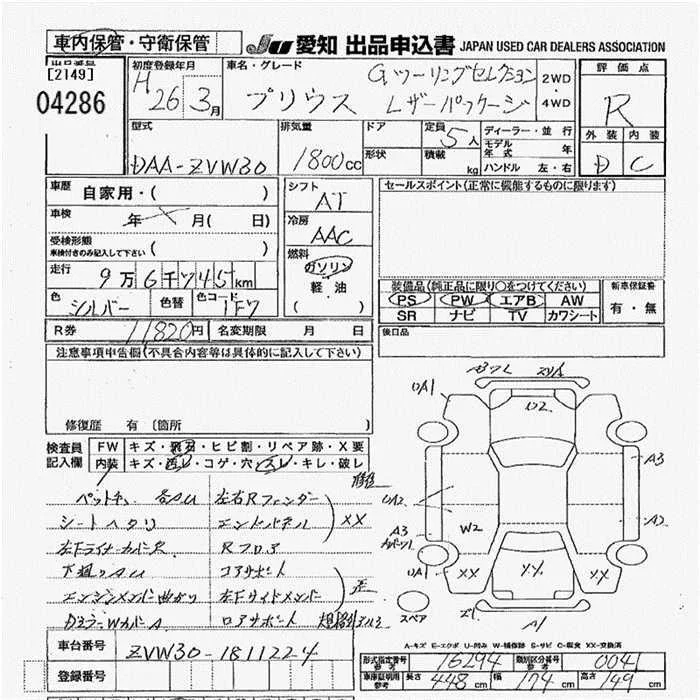 車内保管・守衛保管
JU 愛知 出品申込書 JAPAN USED CAR DEALERS ASSOCIATION
[2149]
04286
初度登録年月
H26 3月
車名・グレード
プリウス
Gツーリングセレクション
レザーパッケージ
2WD・4WD
評価点
R
外装 内装
D C
型式
DAA-ZVW30
排気量
1800cc
ドア
形状
定員 5人
積載 kg
ディーラー・並行
モデル年式 年
ハンドル 左・右
車歴 自家用・( )
車検 年 月( 日)
受検形態
車検付きのみ記入して下さい ( )
走行 9万6千745km
色 シルバー 色替 色コード 1F7
シフト
AT
冷房
AAC
燃料
ガソリン
軽・油
( )
セールスポイント(正常に機能するものに限ります)
装備品(純正品に限り○をつけてください)
PS PW エアB AW
SR ナビ TV カワシート
新車保証書
有・無
R券 11820円 名変期限 月 日
後日品
注意事項申告欄(不具合内容等は具体的に記入して下さい)
修復歴 有 〔箇所
検査員
記入欄
FW キズ・飛石・ヒビ割・リペア跡・X要
内装 キズ・汚レ・コゲ・穴・スレ・キレ・破レ
ペットキャ 各AU
シートヘタリ
左下ライナーカバー欠
下廻りAU
エンジンメンバー曲がり
左右Rフェンダー
エンドパネル
XX
Rフロア
コアサポート
左下サイドメンバー
歪
ロアサポート
UA1
U2
A3
UA2
A3
W2
A2
UA1
XX
XX
XX
スペア
A1
A-キズ E-エクボ U-凹み W-補修跡 S-サビ C-腐食 XX-交換済
車台番号 ZVW30-1811224
登録番号
形式指定番号
参考
16294
類別区分番号
参考
0041
車庫証明用
参考
長さ 448cm 幅 174cm 高さ 149cm